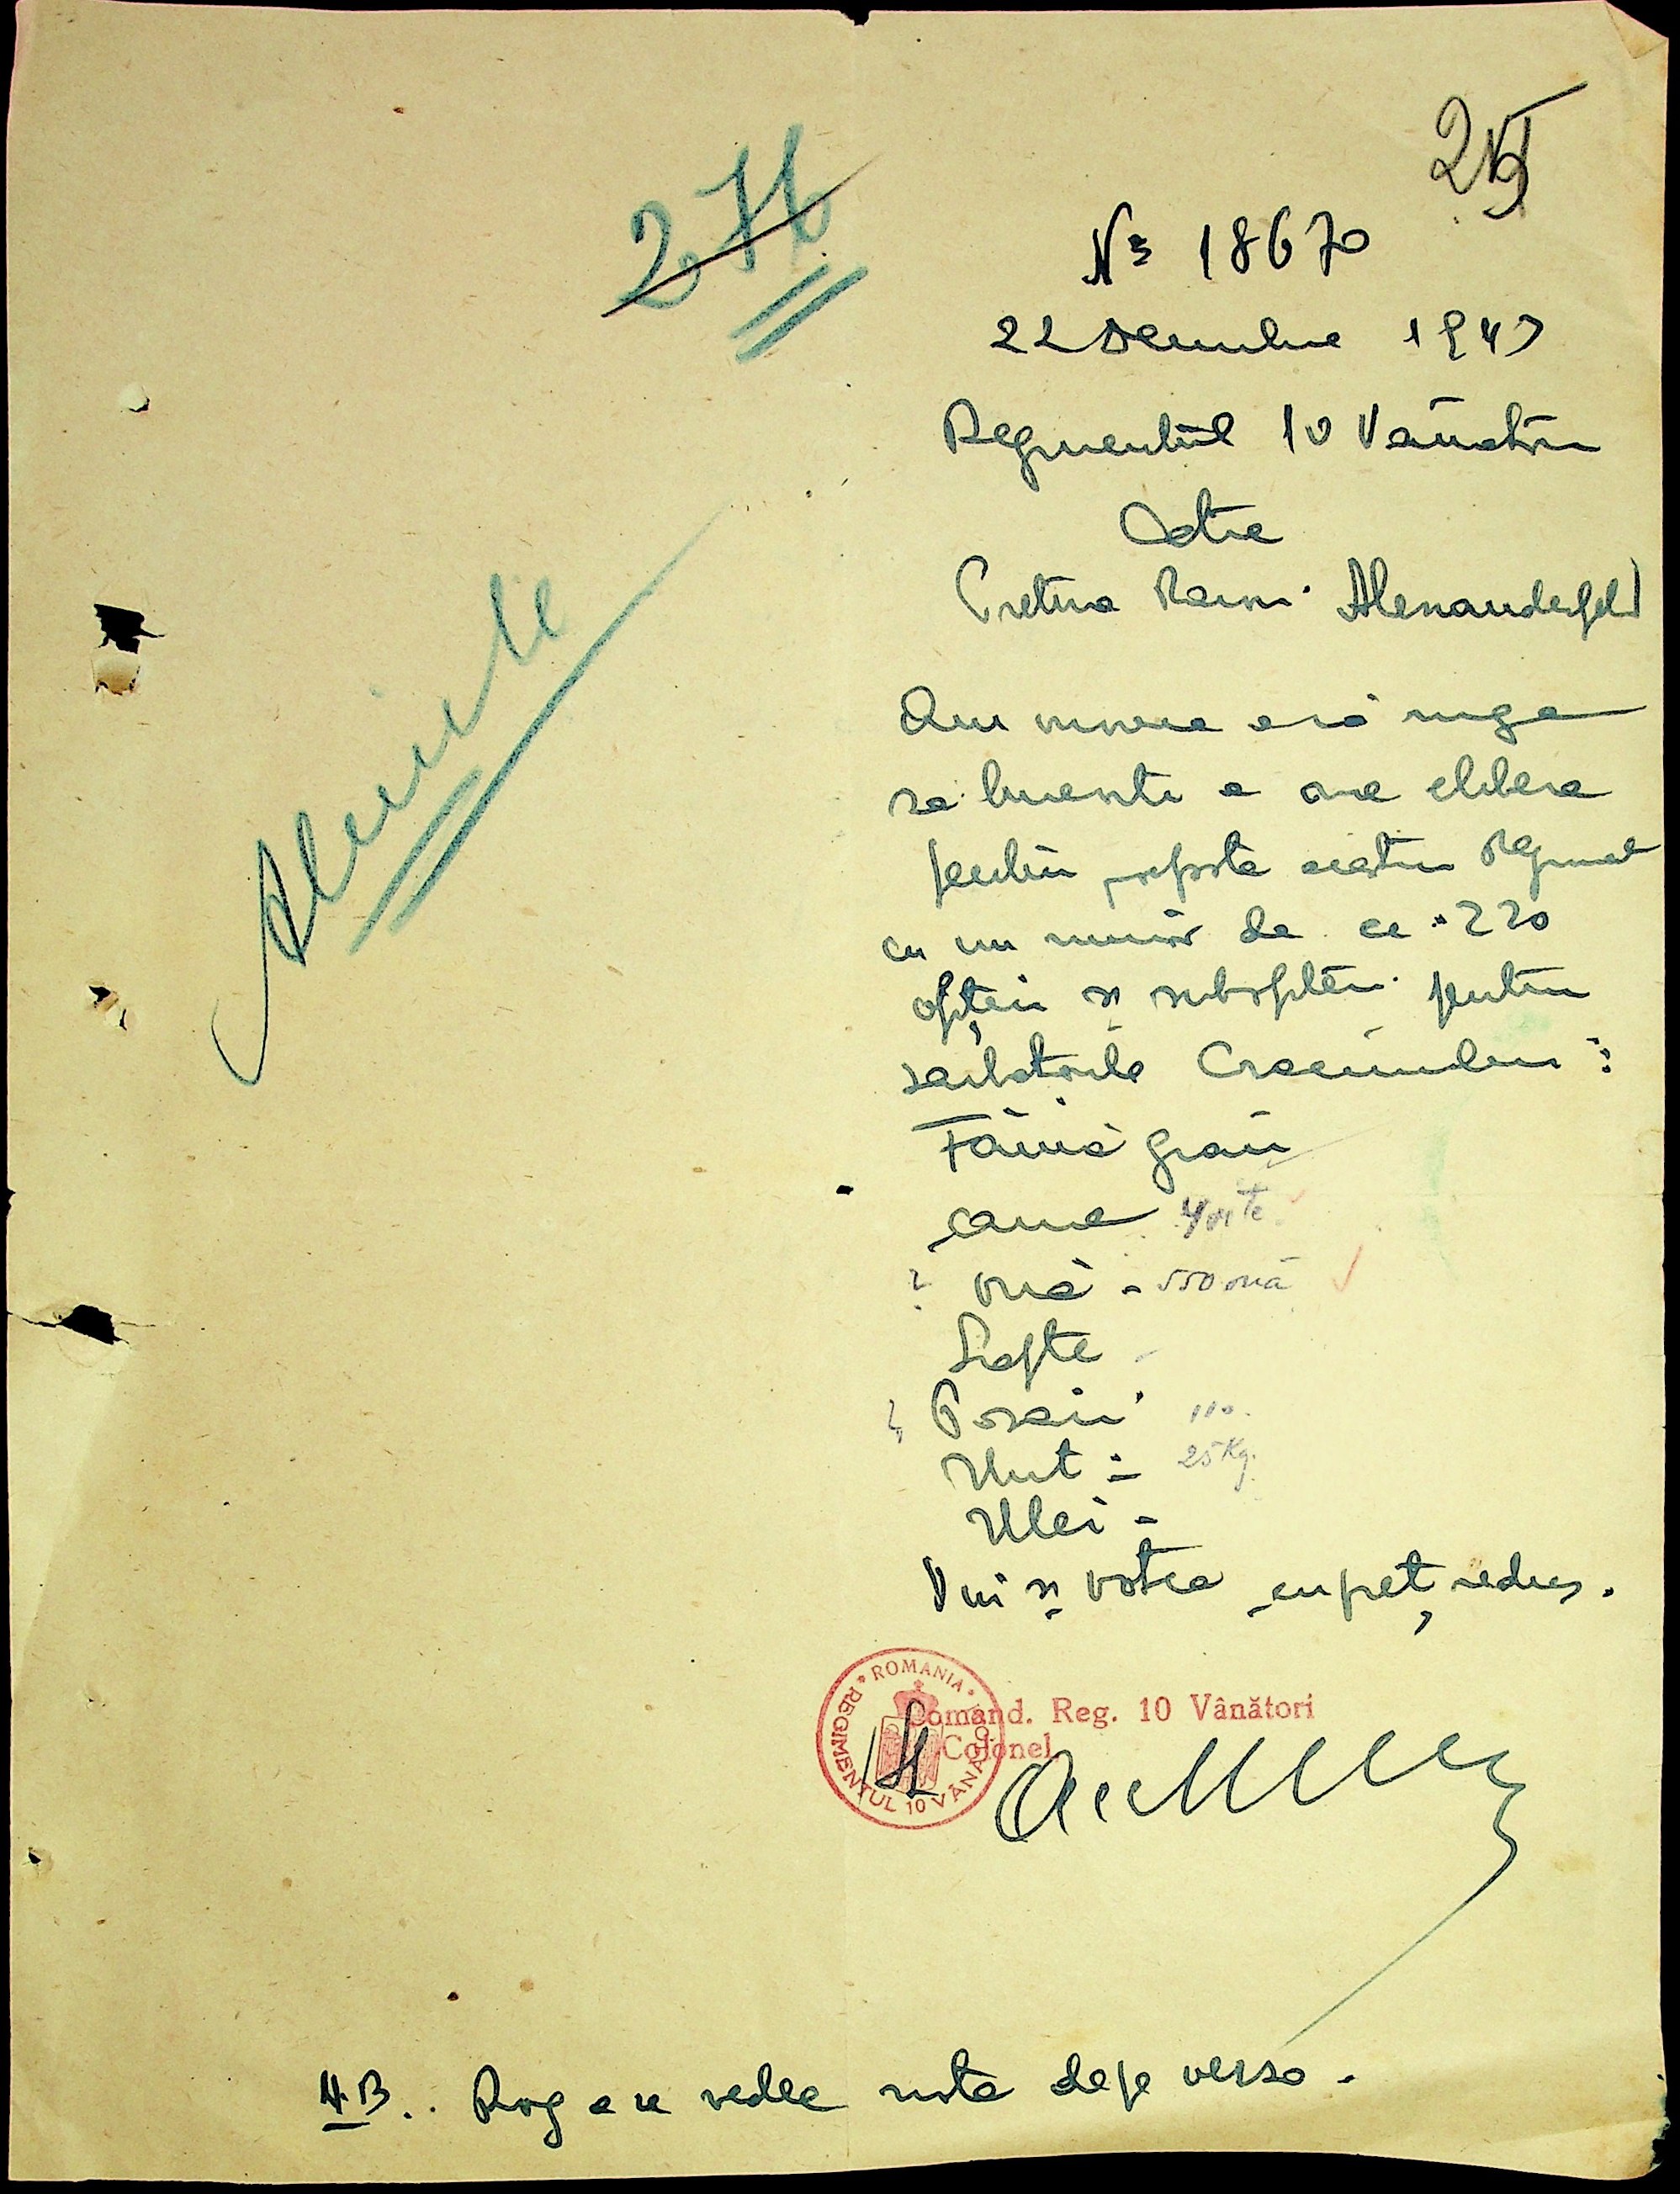 276
No 18670
22 Decembrie 1943
Regimentul 10 Vânători
Catre
Pretura Alexanderfeld
Am onoare a vă ruga
sa binevoiti a ne elibera
pentru popota acestui Regiment
cu un număr de ca. 220
ofițeri si subofiteri pentru
sarbatorile Craciunului:
Făină grâu
carne
ouă - 550 ouă
Lapte -
Unt = 25 Kg.
Ulei -
Vin si votca cu preț redus.
ROMANIA
REGIMENTUL 10 VÂNĂTORI
Comand. Reg. 10 Vânători
Colonel
N.B.. Rog a se vedea nota depe verso.